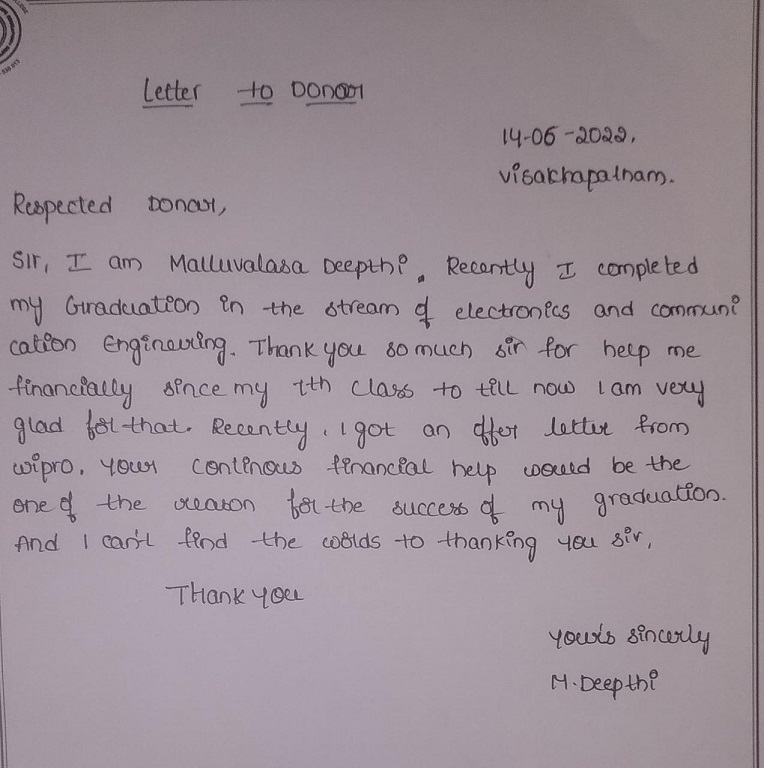 Letter to Donor
14-06-2022,
Visakhapatnam.
Respected Donor,
Sir, I am Malluvalasa Deepthi. Recently I completed
my Graduation in the stream of electronics and communi
cation Engineering. Thank you so much sir for help me
financially since my 7th class to till now I am very
glad for that. Recently, I got an offer letter from
wipro. your continous financial help would be the
one of the reason for the success of my graduation.
And I can't find the words to thanking you sir,
Thank you
your's sincerly
M.Deepthi